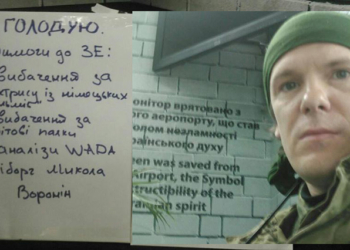 ГОЛОДУЮ.
до ЗЕ:
вибачення за
із німоцьких
вибачення за
палки
аналізи WADA
Микола
Воронін
онітор врятовано з
ого аеропорту, що став
олом незламності
аїнського духу
een was saved from
irport, the Symbol
tructibility of the
ainian spirit